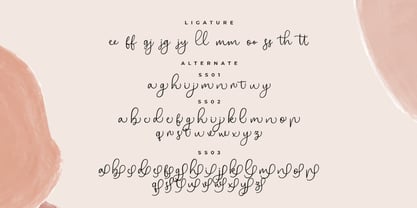 LIGATURE
ee ff gj jg jy ll mm oo ss th tt
ALTERNATE
SS01
a g h i j m n r t w y
SS02
a b c d e f g h i j k l m n o p
q r s t u v w x y z
SS03
a b c d e f g h i j k l m n o p
q r s t u v w x y z